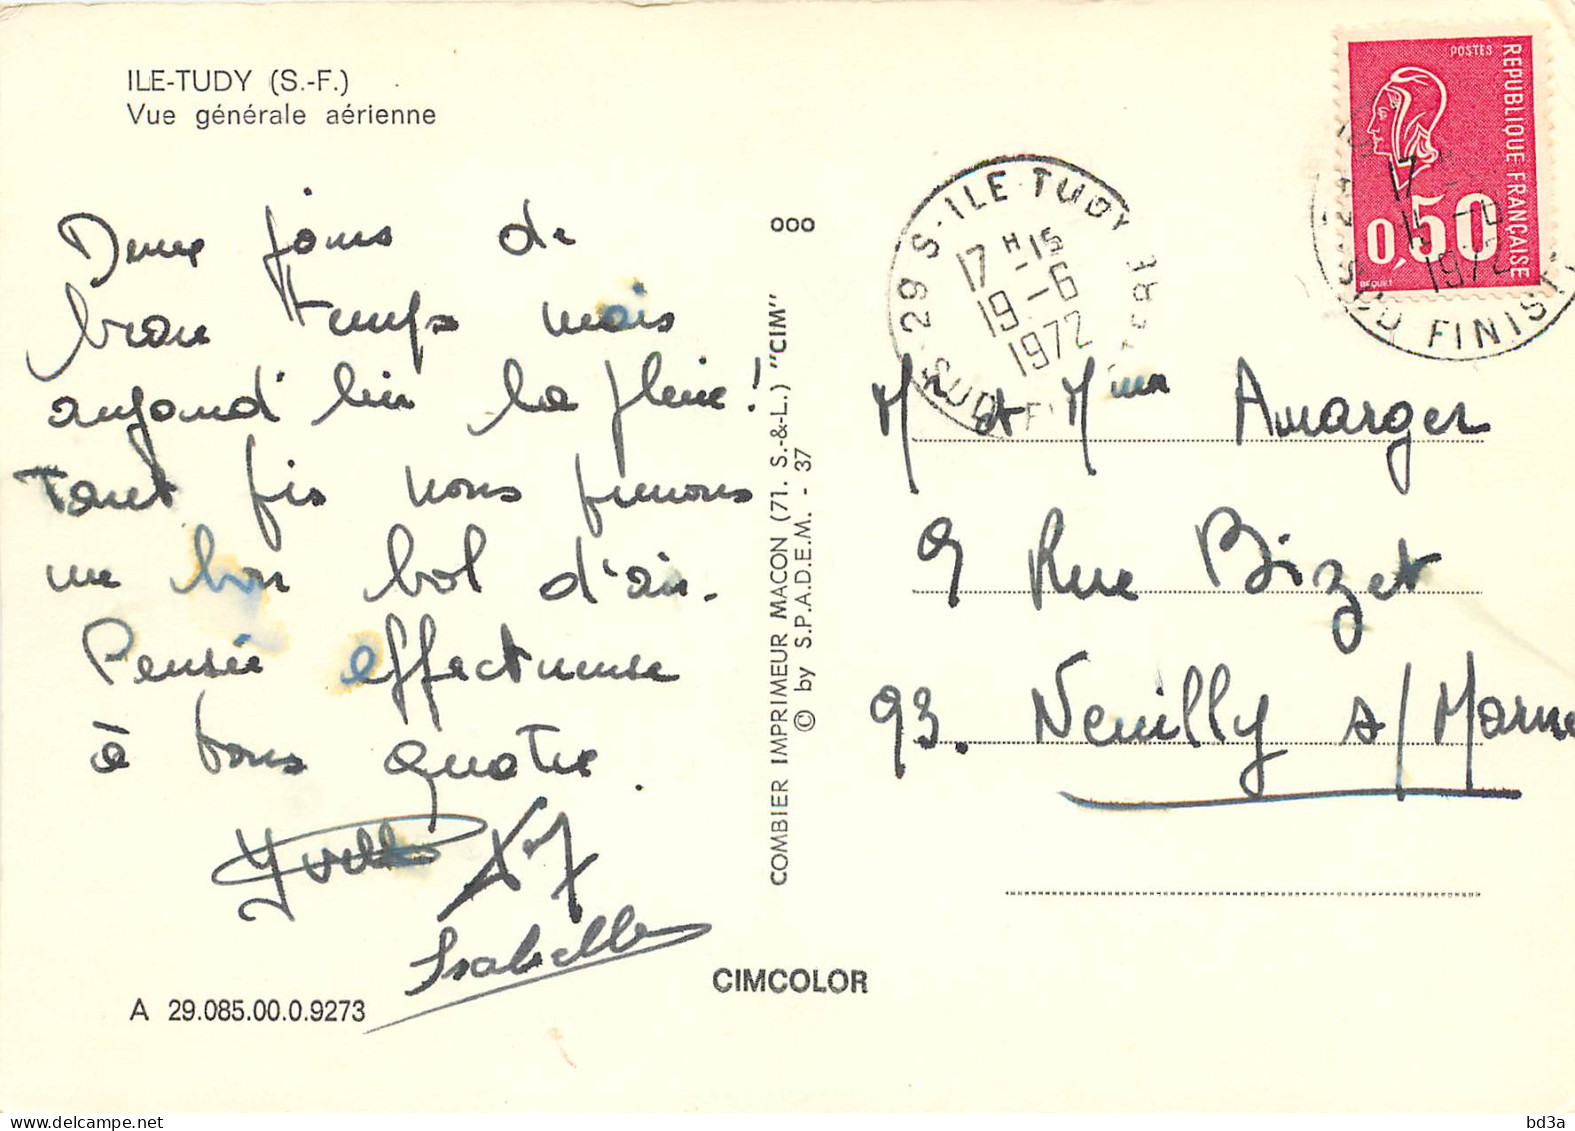 ILE-TUDY (S.-F.)
Vue générale aérienne
Deux jours de
beau temps mais
aujourd'hui la pluie!
Tout fois nous prenons
un bon bol d'air.
Pensée affectueuse
à tous quatre.
Yvette
Isabelle
A 29.085.00.0.9273
CIMCOLOR
COMBIER IMPRIMEUR MACON (71. S.-&-L.) "CIM"
© by S.P.A.D.E.M. - 37
000
29 S-ILE TUDY
17 H-15
19-6
1972
SUD FINISTERE
POSTES
REPUBLIQUE FRANÇAISE
0,50
BEQUET
17 H
1972
SUD FINIST
Mr et Mme Amarger
9 Rue Bizet
93. Neuilly s/Marne
bd3a